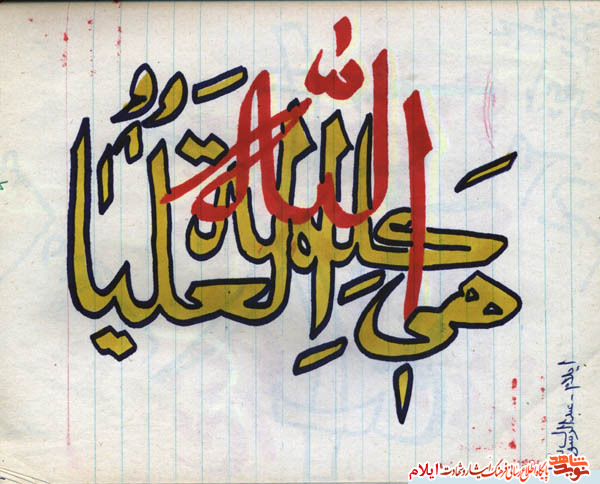 كلمة الله هي العليا
ایلام - عبدالرسول
نوید شاهد
پایگاه اطلاع رسانی فرهنگ ایثار و شهادت ایلام